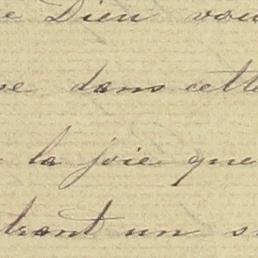 Dieu vou
dans cette
la joie que
trant un s